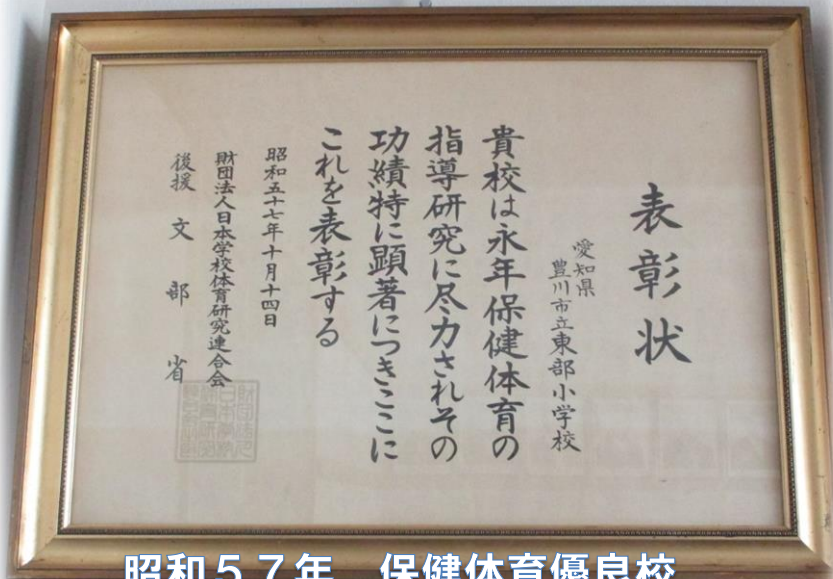 表彰状
愛知県
豊川市立東部小学校
貴校は永年保健体育の
指導研究に尽力されその
功績特に顕著につきここに
これを表彰する
昭和五十七年十月十四日
財団法人日本学校体育研究連合会
後援 文部省
昭和57年 保健体育優良校